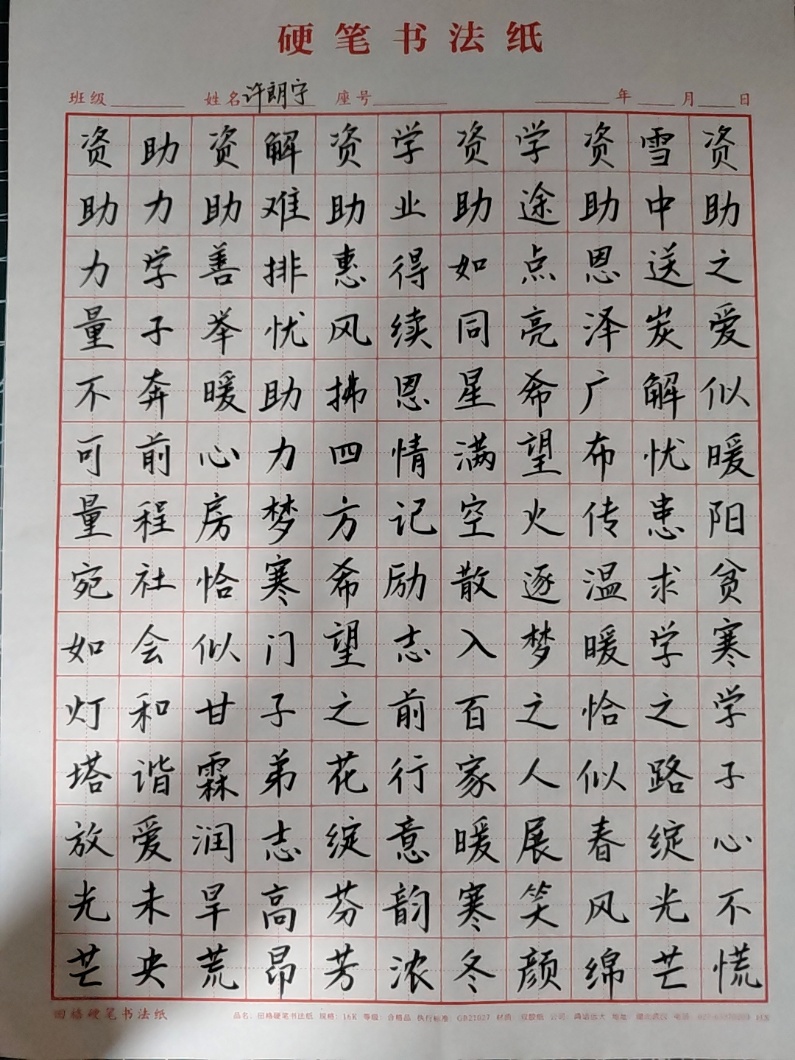 硬笔书法纸
班级 姓名 许朗宇 座号 年 月 日
资助之爱似暖阳贫寒学子心不慌
雪中送炭解忧患求学之路绽光芒
资助恩泽广布传温暖恰似春风绵
学途点亮希望火逐梦之人展笑颜
资助如同星满空散入百家暖寒冬
学业得续恩情记励志前行意韵浓
资助惠风拂四方希望之花绽芬芳
解难排忧助力梦寒门子弟志高昂
资助善举暖心房恰似甘霖润旱荒
助力学子奔前程社会和谐爱未央
资助力量不可量宛如灯塔放光芒
田格硬笔书法纸
品名：田格硬笔书法纸 规格：16K 等级：合格品 执行标准：GB21027 材质：双胶纸